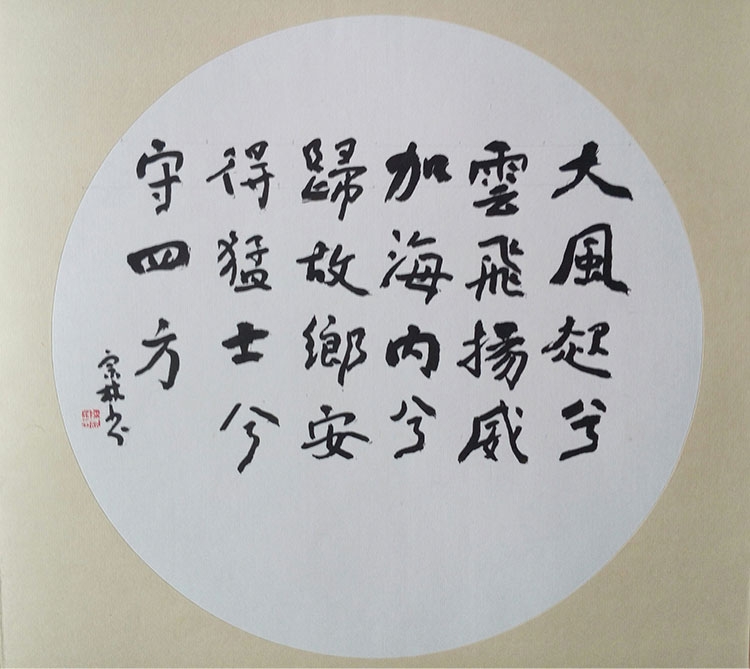 大風起兮
雲飛揚威
加海内兮
歸故鄉安
得猛士兮
守四方
宗林书